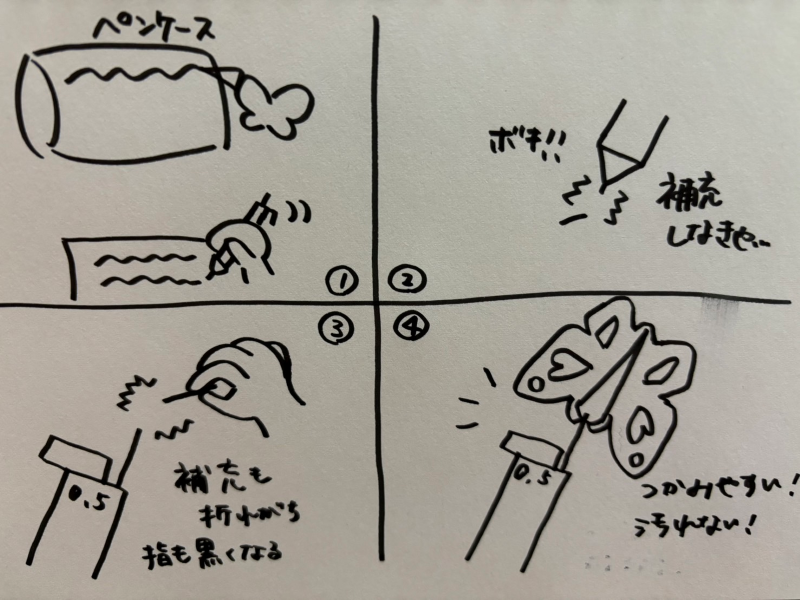 ペンケース
①
ボキ!!
補充
しなきゃ…
②
③
0.5
補充も
折れがち
指も黒くなる
④
0.5
つかみやすい!
汚れない!